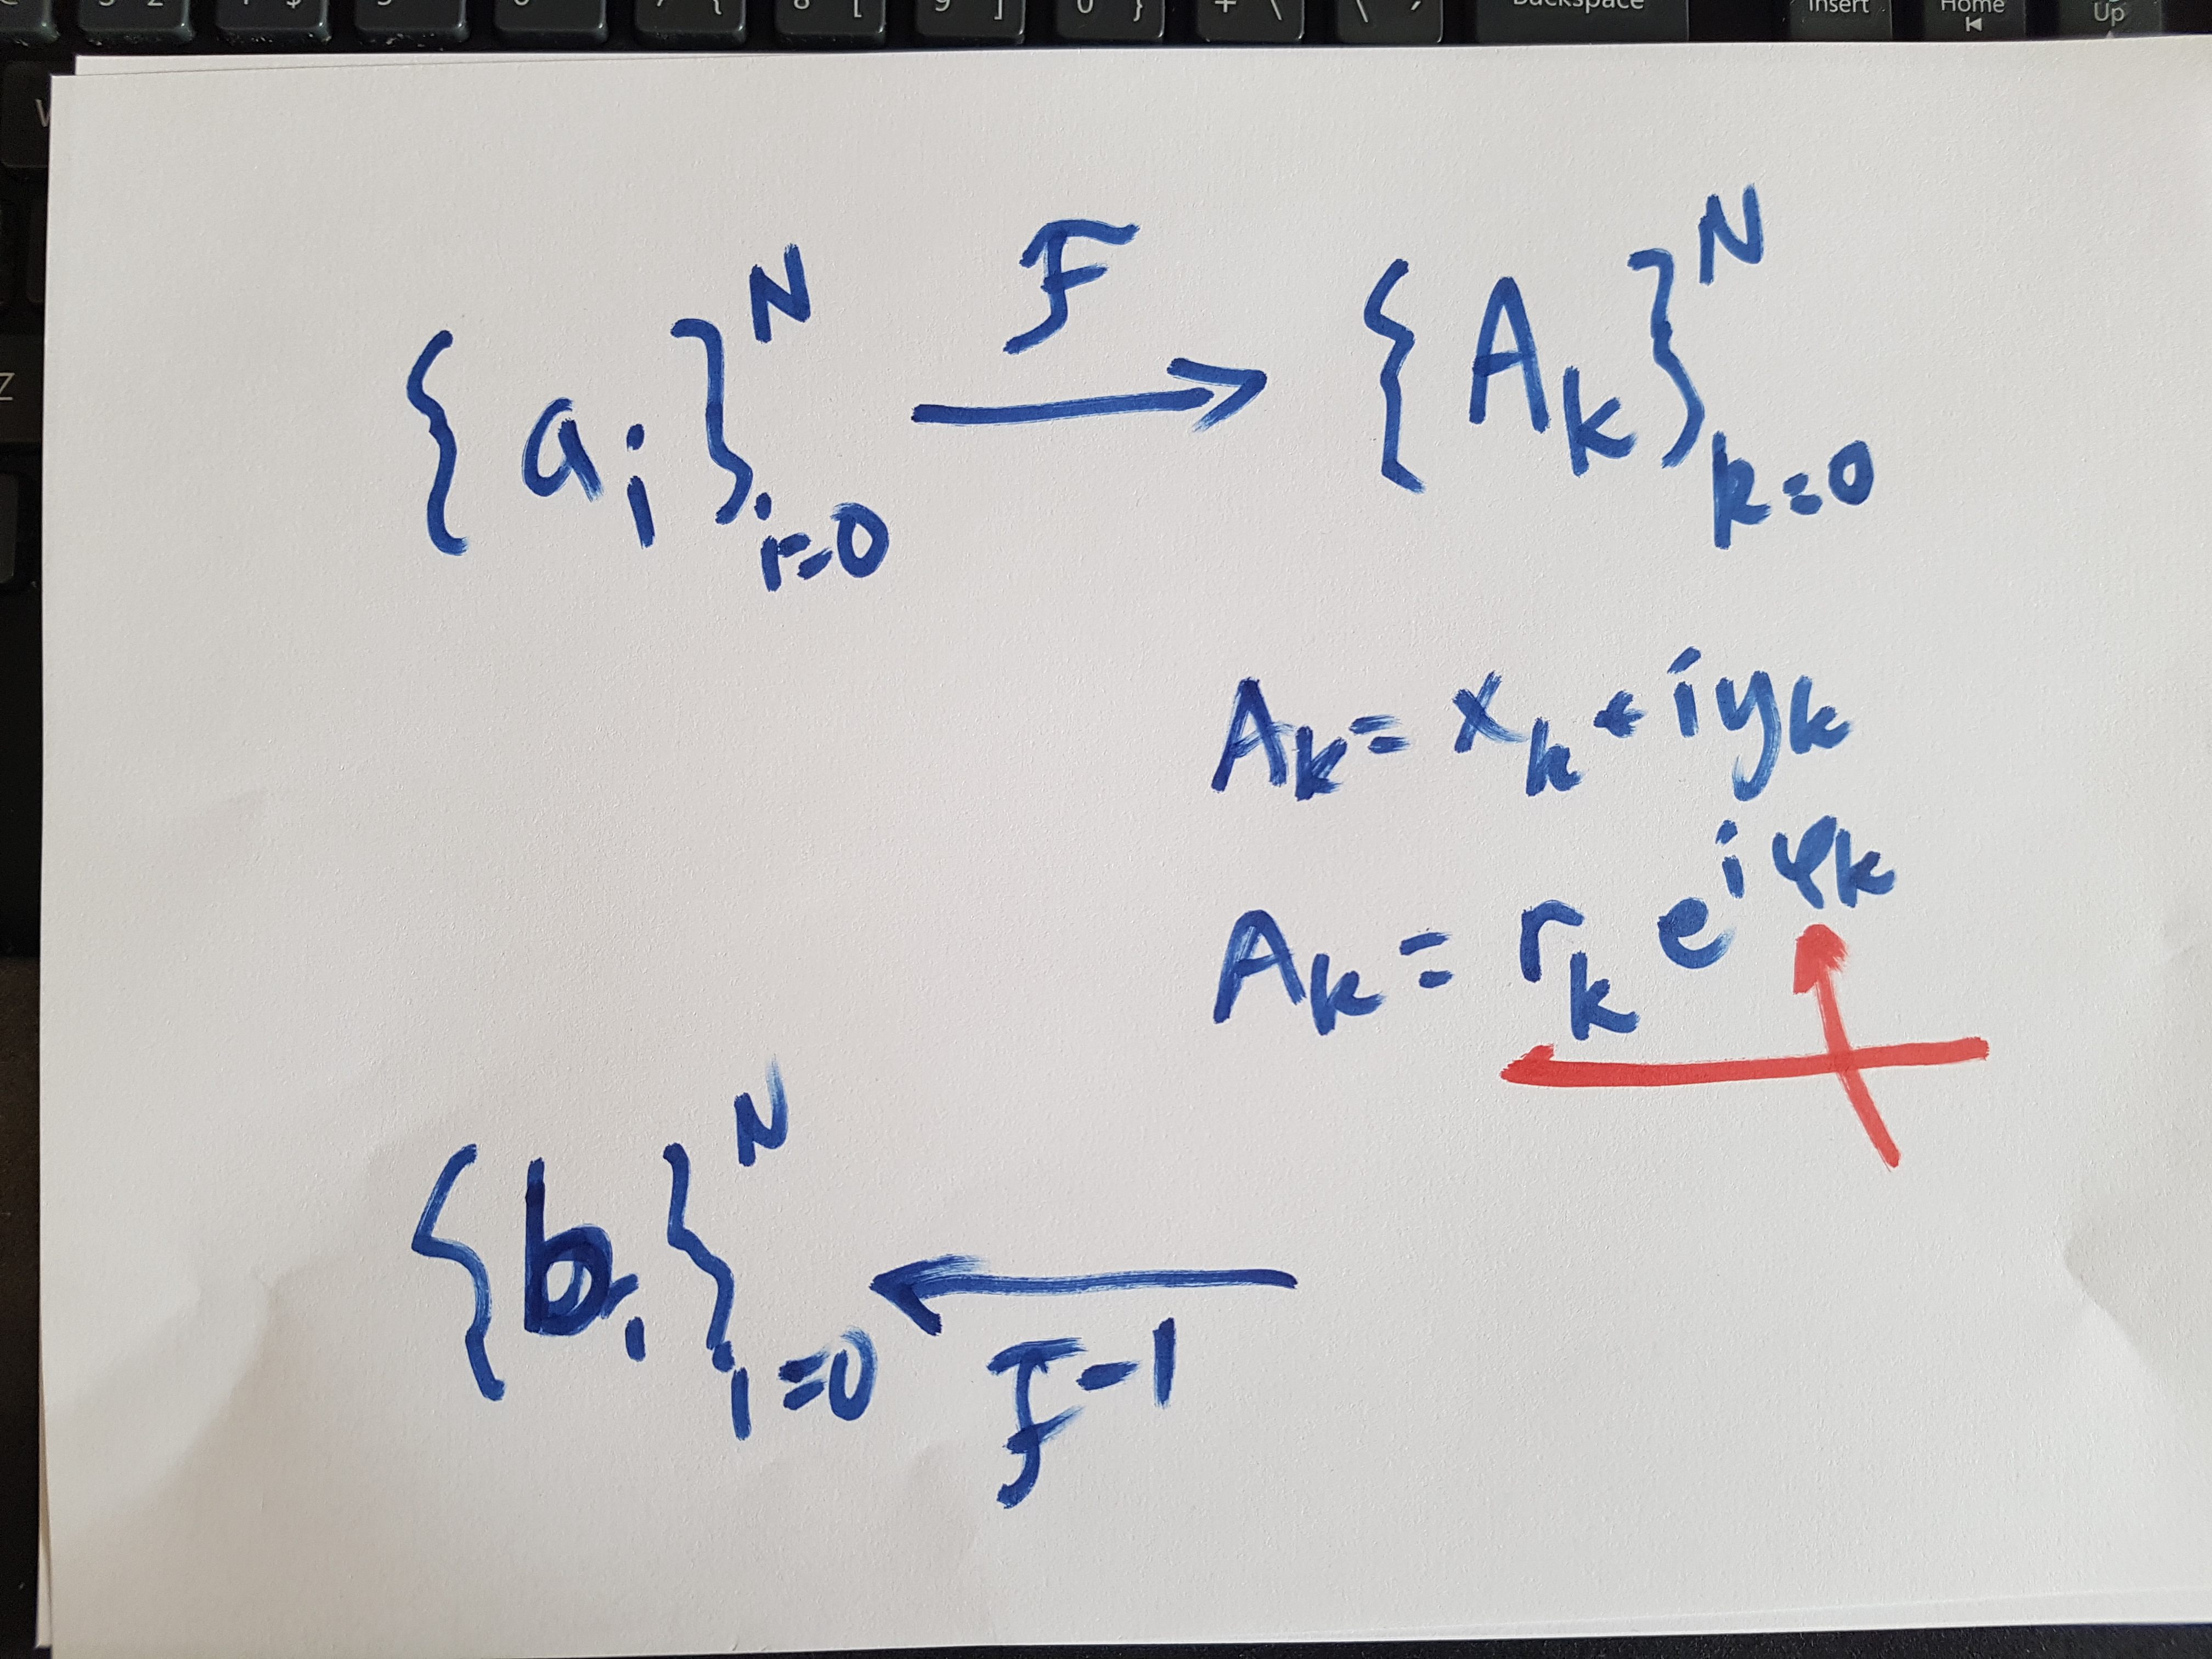 @ 3 2 4 $ 5 6 7 { 8 [ 9 ] 0 } + \ \ Backspace Insert Home Up
W
Z
{a_i}_{i=0}^N →^F {A_k}_{k=0}^N
A_k = x_k + iy_k
A_k = r_k e^{iφ_k}
{b_i}_{i=0}^N ←_{F^{-1}}